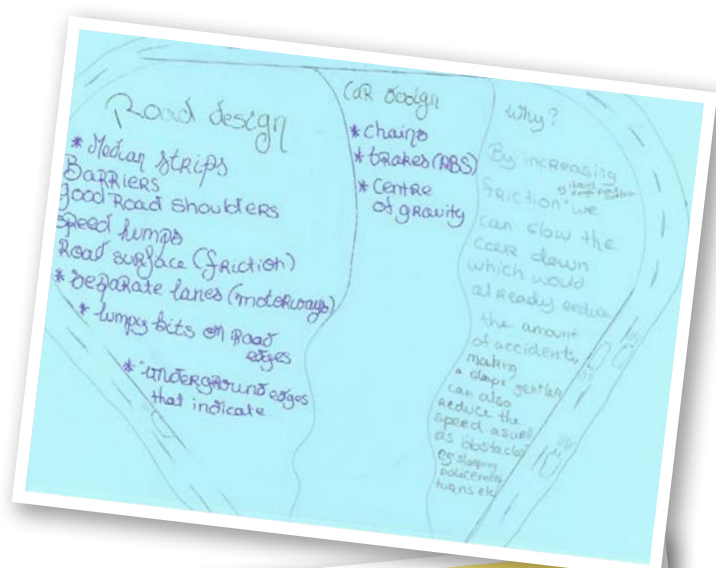 Road design
* Median strips
Barriers
good Road shoulders
speed humps
Road surface (friction)
* separate lanes (motorways)
* lumpy bits on Road
edges
* underground edges
that indicate
CaR design
* chains
* brakes (ABS)
* Centre
of gravity
Why?
By increasing
friction we
can slow the
car down
which would
already reduce
the amount
of accidents,
making
a slope gentler
can also
Reduce the
speed aswell
as obstacles
eg sleeping
policemen
turns etc